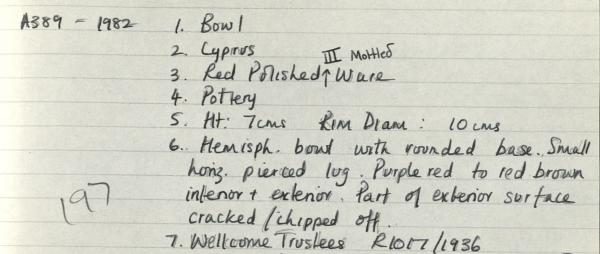 A389 - 1982 1. Bowl
2. Cyprus
III Mottled
3. Red Polished ↑ Ware
4. Pottery
5. Ht: 7cms Rim Diam: 10 cms
6. Hemisph. bowl with rounded base. Small
horiz. pierced lug. Purple red to red brown
interior + exterior. Part of exterior surface
197
cracked / chipped off.
7. Wellcome Trustees R1017/1936